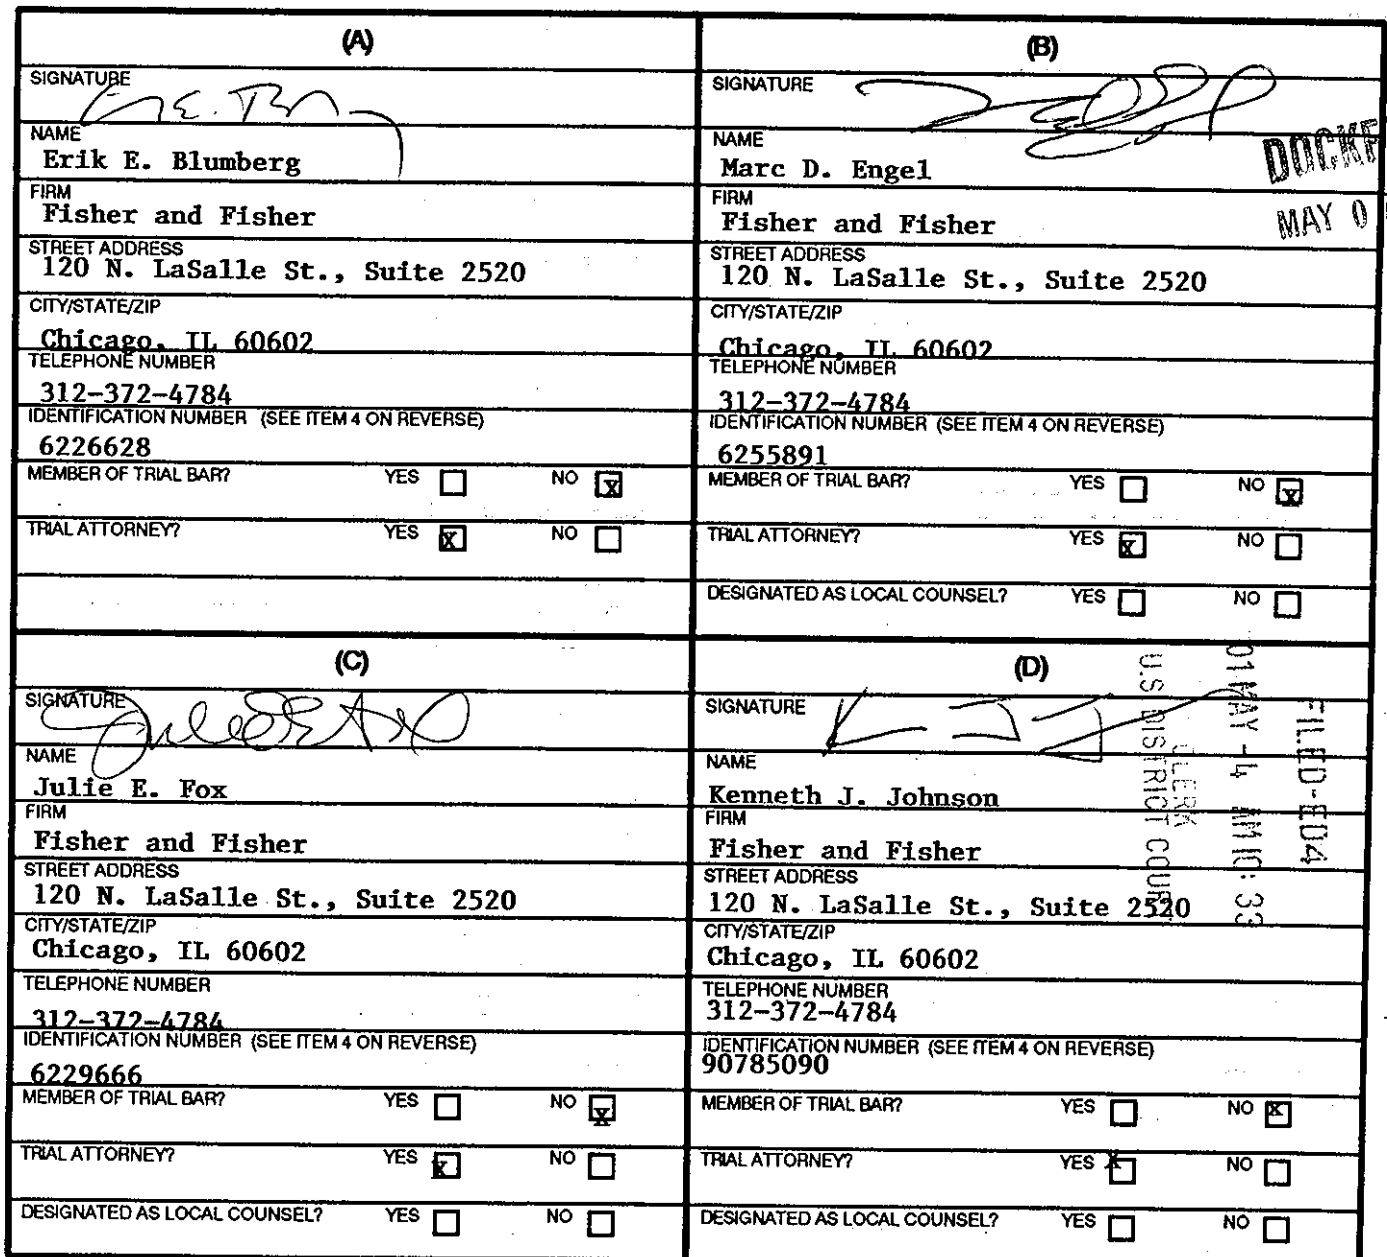 (A)
SIGNATURE
NAME
Erik E. Blumberg
FIRM
Fisher and Fisher
STREET ADDRESS
120 N. LaSalle St., Suite 2520
CITY/STATE/ZIP
Chicago, IL 60602
TELEPHONE NUMBER
312-372-4784
IDENTIFICATION NUMBER (SEE ITEM 4 ON REVERSE)
6226628
MEMBER OF TRIAL BAR? YES NO X
TRIAL ATTORNEY? YES X NO
(B)
SIGNATURE
NAME
Marc D. Engel
FIRM
Fisher and Fisher
STREET ADDRESS
120 N. LaSalle St., Suite 2520
CITY/STATE/ZIP
Chicago, IL 60602
TELEPHONE NUMBER
312-372-4784
IDENTIFICATION NUMBER (SEE ITEM 4 ON REVERSE)
6255891
MEMBER OF TRIAL BAR? YES NO X
TRIAL ATTORNEY? YES X NO
DESIGNATED AS LOCAL COUNSEL? YES NO
DOCKE
MAY 0
(C)
SIGNATURE
Julie E Fox
NAME
Julie E. Fox
FIRM
Fisher and Fisher
STREET ADDRESS
120 N. LaSalle St., Suite 2520
CITY/STATE/ZIP
Chicago, IL 60602
TELEPHONE NUMBER
312-372-4784
IDENTIFICATION NUMBER (SEE ITEM 4 ON REVERSE)
6229666
MEMBER OF TRIAL BAR? YES NO X
TRIAL ATTORNEY? YES X NO
DESIGNATED AS LOCAL COUNSEL? YES NO
(D)
SIGNATURE
NAME
Kenneth J. Johnson
FIRM
Fisher and Fisher
STREET ADDRESS
120 N. LaSalle St., Suite 2520
CITY/STATE/ZIP
Chicago, IL 60602
TELEPHONE NUMBER
312-372-4784
IDENTIFICATION NUMBER (SEE ITEM 4 ON REVERSE)
90785090
MEMBER OF TRIAL BAR? YES NO X
TRIAL ATTORNEY? YES X NO
DESIGNATED AS LOCAL COUNSEL? YES NO
FILED-ED4
01 MAY -4 AM 10:33
CLERK
U.S. DISTRICT COURT